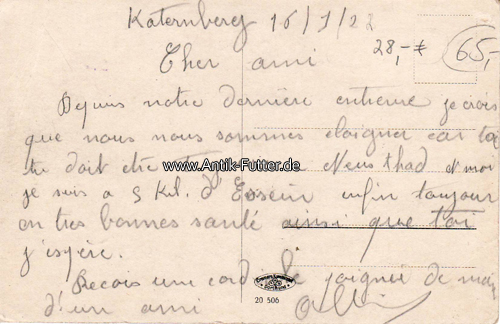 Katernberg 16/1/22
28,- €
65,-
Cher ami
Depuis notre dernière entrevue je crois
que nous nous sommes eloigner car toi
tu doit etre Neusthad et moi
www.Antik-Futter.de
je suis a 5 Kil. d'Essein enfin toujour
en tres bonnes santé ainsi que toi
j'espère.
Recois une cordiale poignée de main
d'un ami
20 506